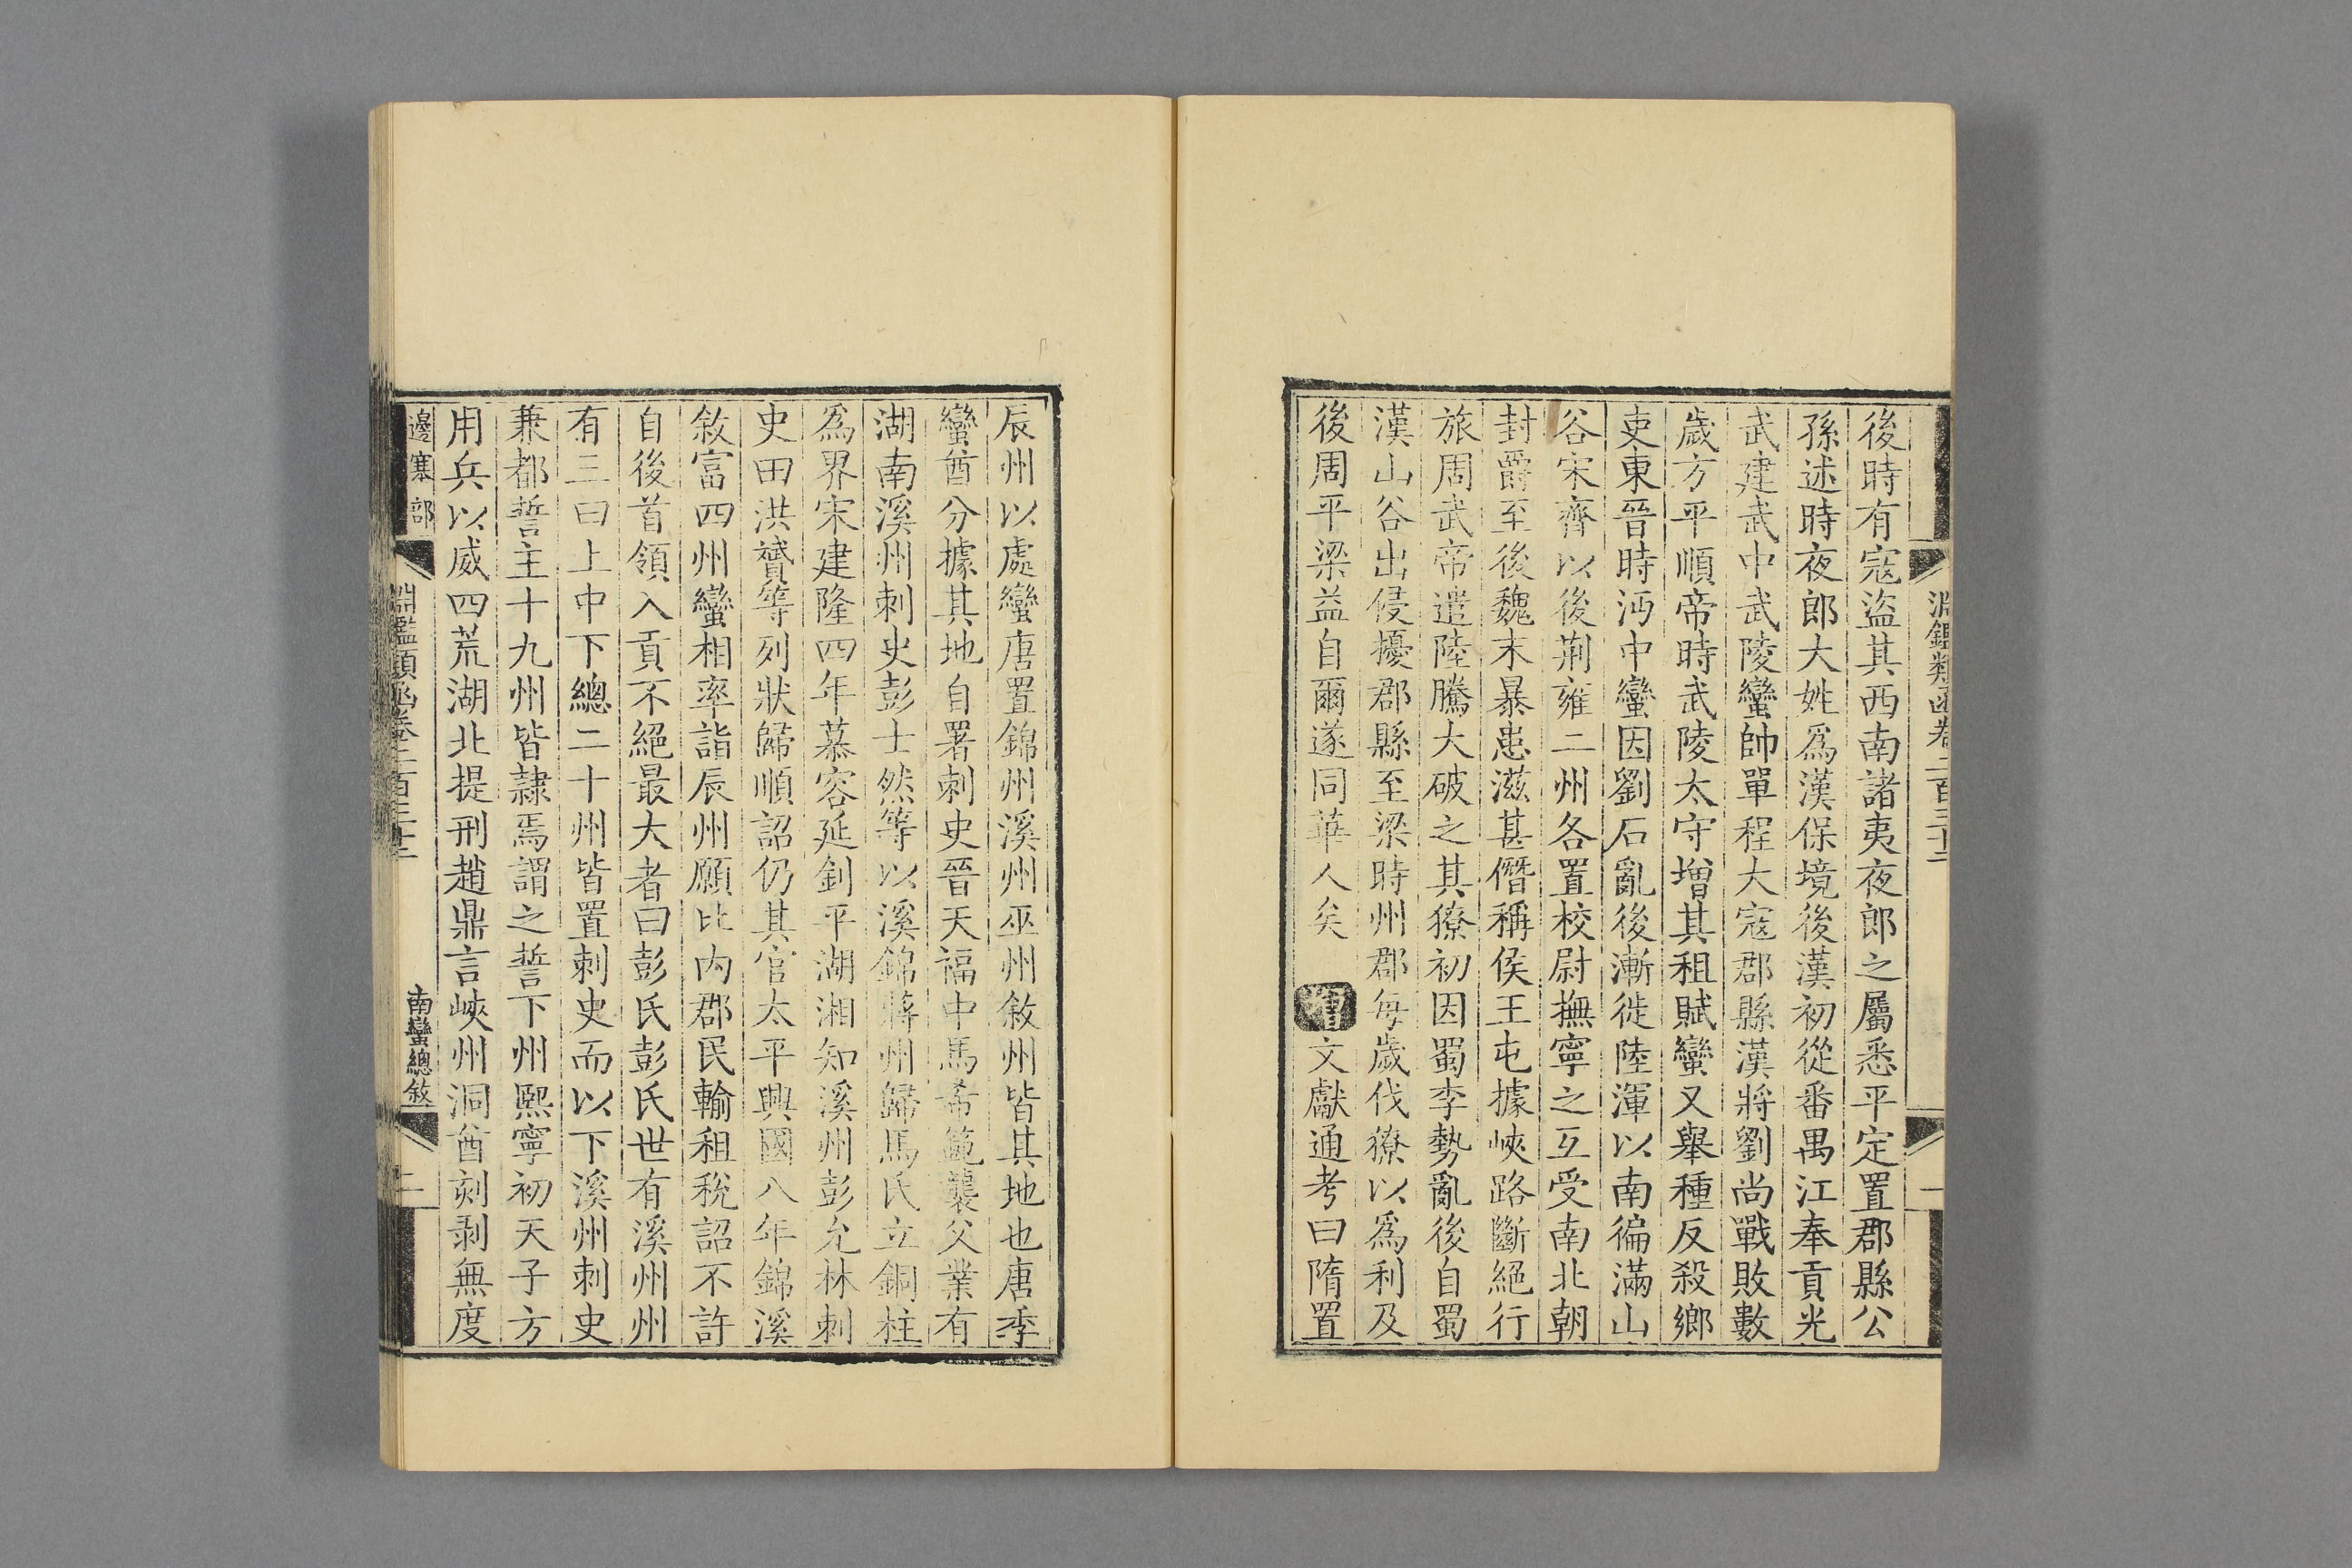 淵鑑類函卷二百三十二
一
後時有寇盜其西南諸夷夜郎之屬悉平定置郡縣公
孫述時夜郎大姓爲漢保境後漢初從番禺江奉貢光
武建武中武陵蠻帥單程大寇郡縣漢將劉尚戰敗數
歲方平順帝時武陵太守增其租賦蠻又舉種反殺鄉
吏東晉時沔中蠻因劉石亂後漸徙陸渾以南徧滿山
谷宋齊以後荆雍二州各置校尉撫寧之互受南北朝
封爵至後魏末暴患滋甚僭稱侯王屯據峽路斷絕行
旅周武帝遣陸騰大破之其獠初因蜀李勢亂後自蜀
漢山谷出侵擾郡縣至梁時州郡每歲伐獠以爲利及
後周平梁益自爾遂同華人矣 增 文獻通考曰隋置
辰州以處蠻唐置錦州溪州巫州敘州皆其地也唐季
蠻酋分據其地自署刺史晉天福中馬希範襲父業有
湖南溪州刺史彭士然等以溪錦蔣州歸馬氏立銅柱
爲界宋建隆四年慕容延釗平湖湘知溪州彭允林刺
史田洪贇等列狀歸順詔仍其官太平興國八年錦溪
敘富四州蠻相率詣辰州願比內郡民輸租稅詔不許
自後首領入貢不絕最大者曰彭氏彭氏世有溪州州
有三曰上中下總二十州皆置刺史而以下溪州刺史
兼都誓主十九州皆隷焉謂之誓下州熙寧初天子方
用兵以威四荒湖北提刑趙鼎言峽州洞酋刻剥無度
邊塞部
淵鑑類函卷二百三十二
南蠻總敘
二